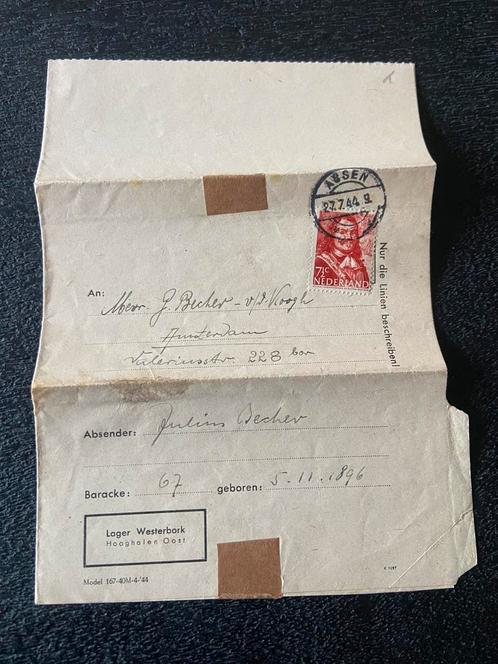 ASSEN
27.7.44.9
7½c
NEDERLAND
Nur die Linien beschreiben!
An: Mevr. J. Becher - v/d Koogh
Amsterdam
Valeriusstr. 228 bov
Absender: Julius Becher
Baracke: 67 geboren: 5.11.1896
Lager Westerbork
Hooghalen Oost
Model 167-40M-4-'44